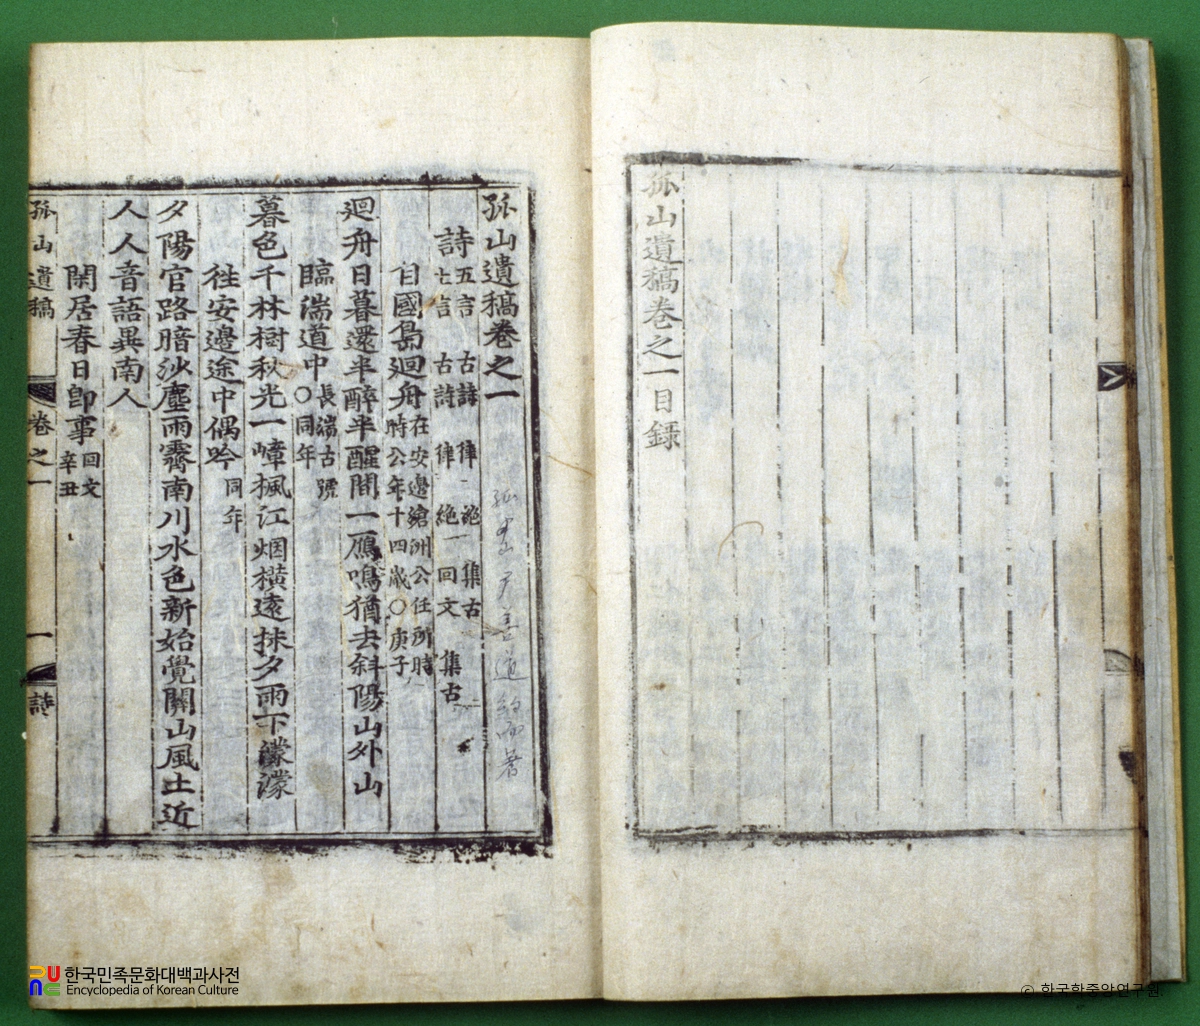 孤山遺稿卷之一目錄
孤山遺稿卷之一
詩 五言 古詩 律 絶 集古
七言 古詩 律 絶 回文 集古
自國島廻舟 在安邊 公任所時
時公年十四歲〇庚子
廻舟日暮還半醉半醒間一鴈鳴猶去斜陽山外山
臨湍道中 長湍古號
〇同年
暮色千林樹秋光一嶂楓江烟橫遠抹夕雨下濛濛
徃安邊途中偶吟 同年
夕陽官路暗沙塵雨霽南川水色新始覺關山風土近
人人音語異南人
閑居春日卽事 回文
辛丑
孤山遺稿 卷之一 一 詩
한국민족문화대백과사전
Encyclopedia of Korean Culture
© 한국학중앙연구원